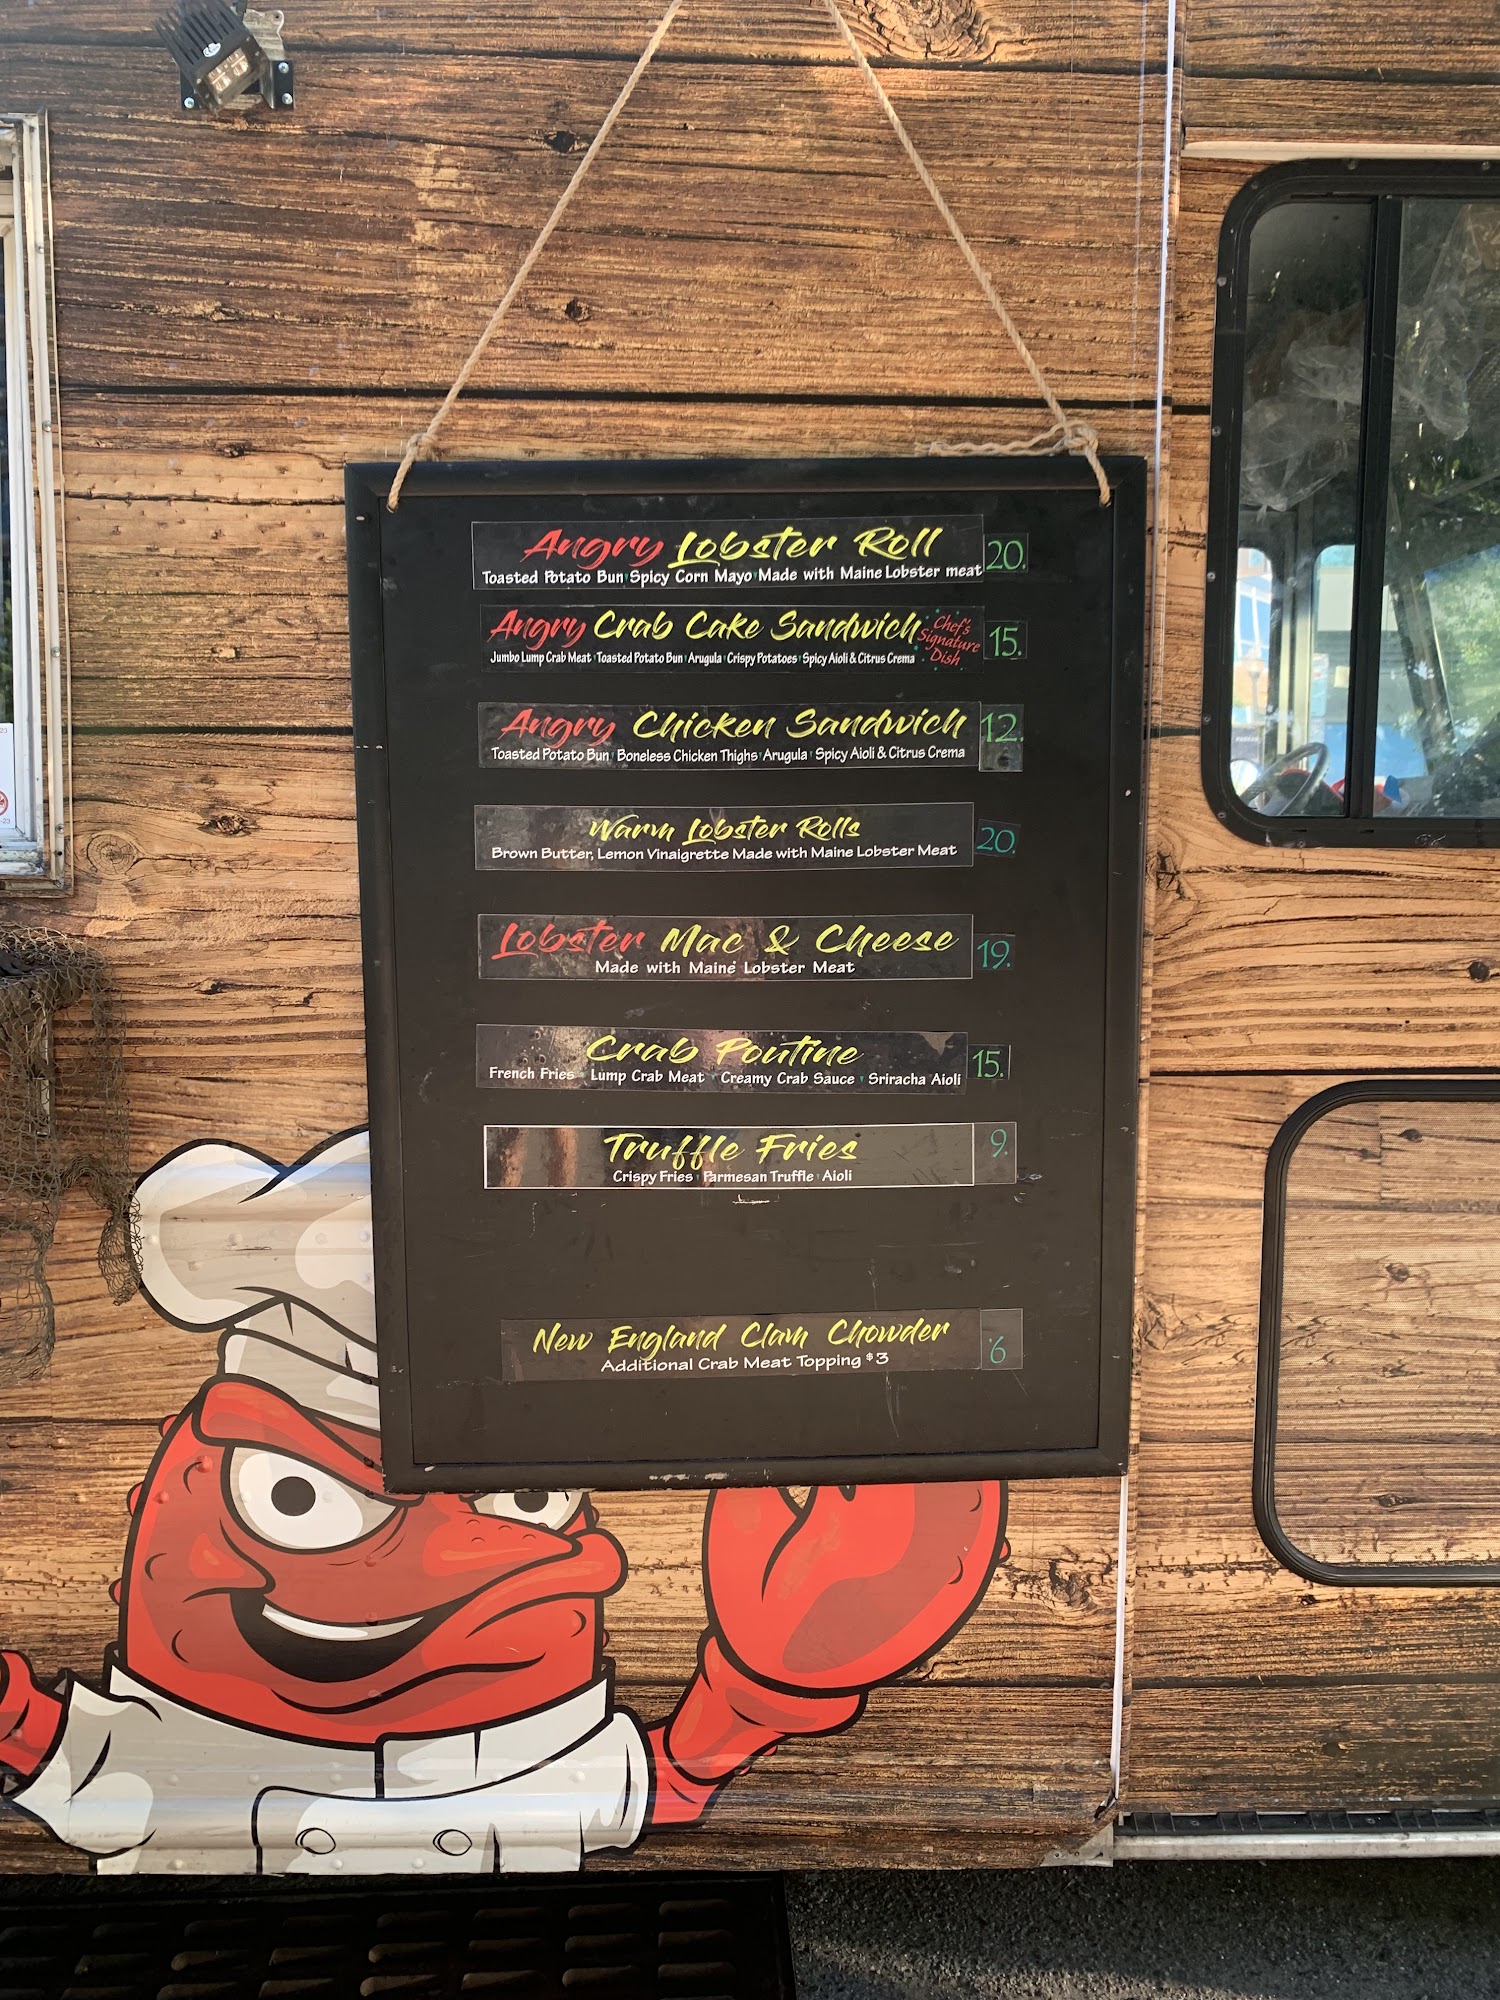 Angry Lobster Roll 20.
Toasted Potato Bun Spicy Corn Mayo Made with Maine Lobster meat
Angry Crab Cake Sandwich Chef's Signature Dish 15.
Jumbo Lump Crab Meat Toasted Potato Bun Arugula Crispy Potatoes Spicy Aioli & Citrus Crema
Angry Chicken Sandwich 12.
Toasted Potato Bun Boneless Chicken Thighs Arugula Spicy Aioli & Citrus Crema
Warm Lobster Rolls 20.
Brown Butter, Lemon Vinaigrette Made with Maine Lobster Meat
Lobster Mac & Cheese 19.
Made with Maine Lobster Meat
Crab Poutine 15.
French Fries Lump Crab Meat Creamy Crab Sauce Sriracha Aioli
Truffle Fries 9.
Crispy Fries Parmesan Truffle Aioli
New England Clam Chowder 6
Additional Crab Meat Topping $3